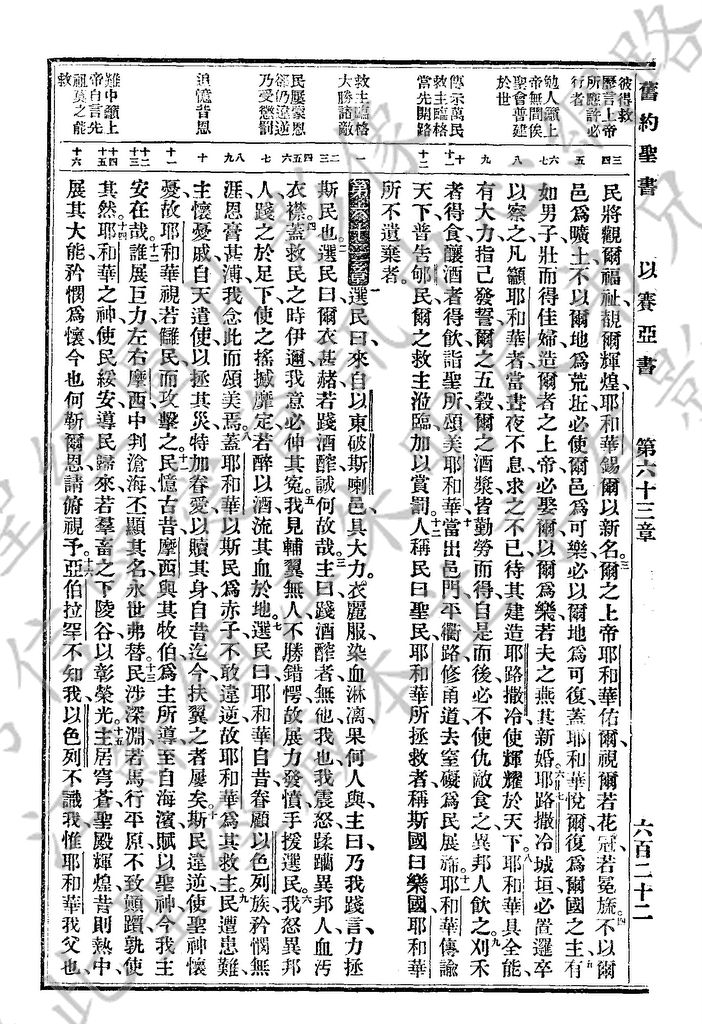 舊約聖書 以賽亞書 第六十三章 六百二十二
彼得救
歷言上帝
所應許必
行者
勉人籲上
帝無間俟
聖會普建
於世
傳示萬民
救主臨格
當先開路
救主臨格
大勝諸敵
民屢蒙恩
卻仍違逆
乃受懲罰
追憶昔恩
難中籲上
帝自言先
祖莫之能
救
民將觀爾福祉覩爾輝煌、耶和華錫爾以新名、三爾之上帝耶和華佑爾、視爾若花冠、若冕旒、四不以爾
邑爲曠土、不以爾地爲荒坵、必使爾邑爲可樂、必以爾地爲可復、蓋耶和華悅爾、復爲爾國之主、五有
如男子壯而得佳婦、造爾者之上帝必娶爾、以爾爲樂、若夫之燕其新婚、六七耶路撒冷城垣、必置邏卒
以察之、凡籲耶和華者、當晝夜不息、求之不已、待其建造耶路撒冷、使輝耀於天下、八耶和華具全能、
有大力、指己發誓、爾之五穀、爾之酒漿、皆勤勞而得、自是而後、必不使仇敵食之、異邦人飲之、九刈禾
者得食、釀酒者得飲、詣聖所、頌美耶和華、十當出邑門、平衢路、修甬道、去窒礙、爲民展旆、十一耶和華傳諭
天下、普告郇民、爾之救主涖臨、加以賞罰、十二人稱民曰聖民、耶和華所拯救者、稱斯國曰樂國、耶和華
所不遺棄者。
第六十三章 一選民曰、來自以東破斯喇邑、具大力、衣麗服、染血淋漓、果何人與、主曰、乃我踐言、力拯
斯民也。二選民曰、爾衣甚赭、若踐酒醡、誠何故哉、三主曰、踐酒醡者無他、我也、我震怒蹂躪異邦人、血汚
衣襟、四蓋救民之時伊邇、我意必伸其冤、五我見輔翼無人、不勝錯愕、故展力發憤、手援選民、六我怒異邦
人、踐之於足下、使之搖撼靡定、若醉以酒、流其血於地。七選民曰、耶和華自昔眷顧以色列族、矜憫無
涯、恩膏甚溥、我念此而頌美焉、八蓋耶和華以斯民爲赤子、不敢違逆、故耶和華爲其救主、九民遭患難、
主懷憂戚、自天遣使、以拯其災、特加眷愛、以贖其身、自昔迄今、扶翼之者屢矣、十斯民違逆、使聖神懷
憂、故耶和華視若讎民、而攻擊之、十一民憶古昔摩西、與其牧伯、爲主所導、至自海濱、賦以聖神、今我主
安在哉、十二誰展巨力、左右摩西、中判滄海、丕顯其名、永世弗替、十三民涉深淵、若馬行平原、不致顚躓、孰使
其然、十四耶和華之神、使民綏安、導民歸來、若羣畜之下陵谷、以彰榮光、十五主居穹蒼、聖殿輝煌、昔則熱中、
展其大能、矜憫爲懷、今也何靳爾恩、請俯視予、十六亞伯拉罕不知我、以色列不識我、惟耶和華我父也、